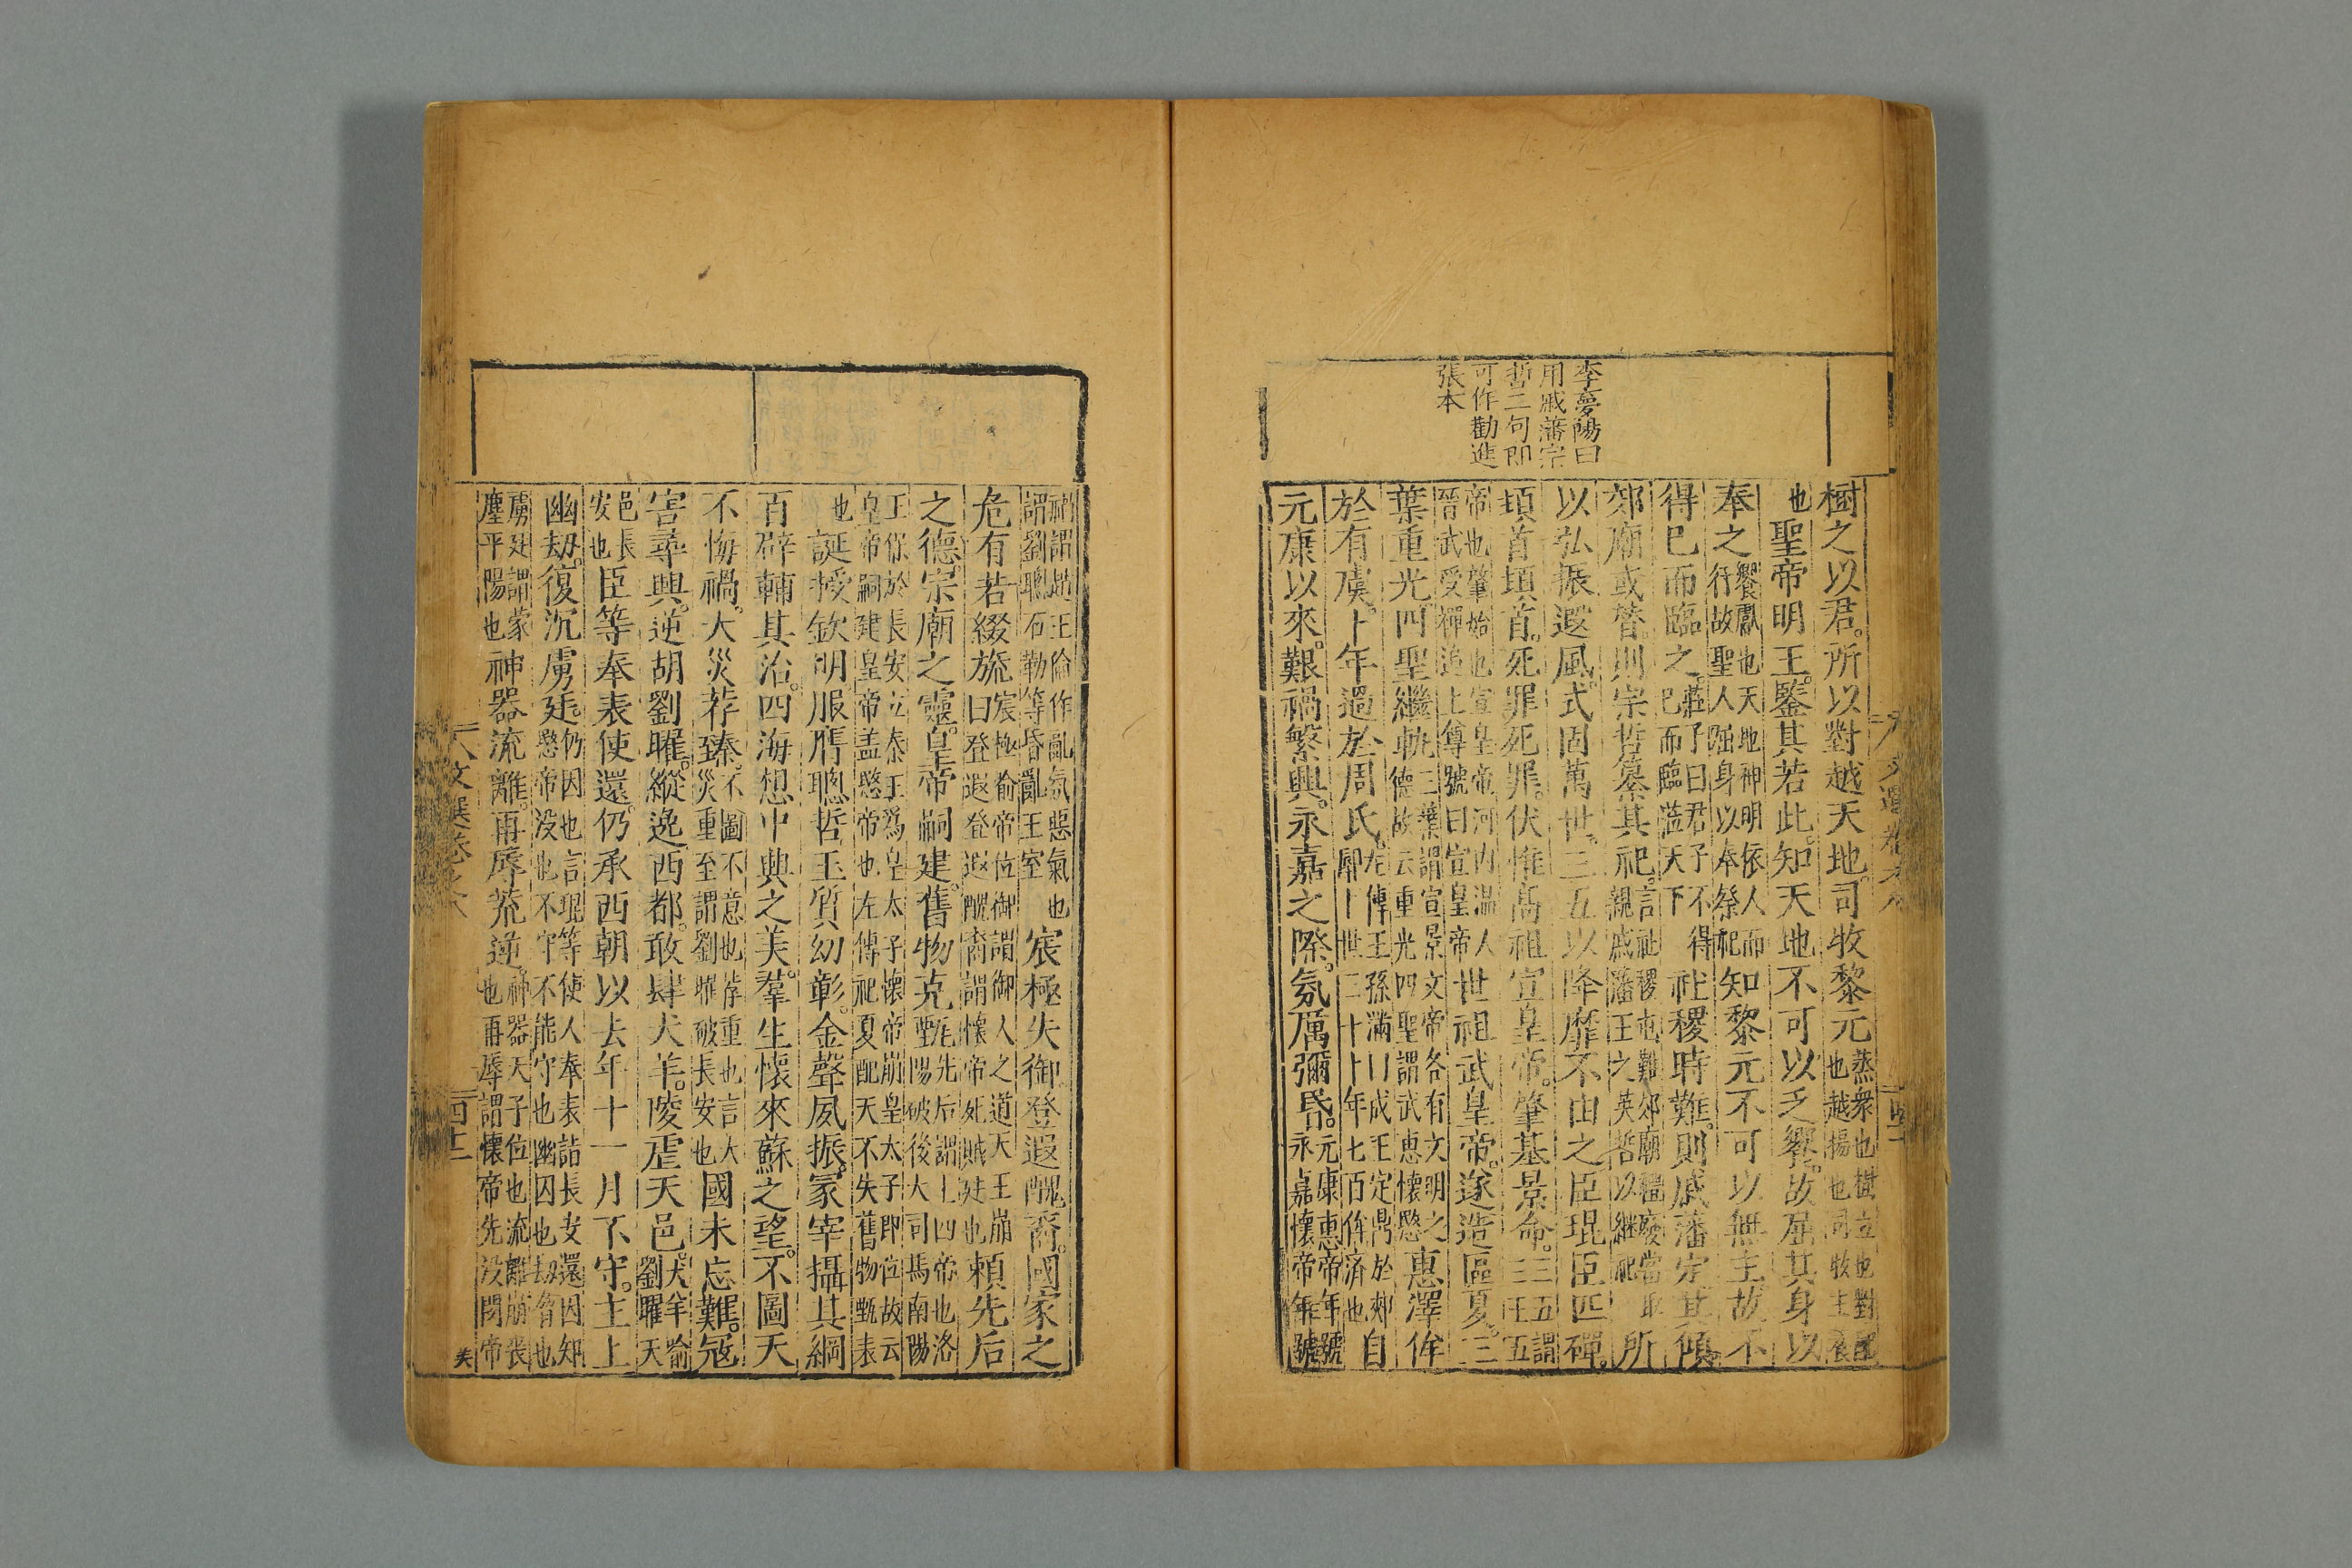 李夢陽曰
用戚藩宗
哲二句即
可作勸進
張本
樹之以君。所以對越天地。司牧黎元蒸衆也樹立也對配也越揚也司牧主養
也聖帝明王。鑒其若此。知天地不可以乏饗。故屈其身以
奉之饗獻也天地神明依人而行故聖人屈身以奉祭祀知黎元不可以無主故不
得已而臨之。莊子曰君子不得已而臨蒞天下社稷時難。則戚藩定其傾
郊廟或替。則宗哲纂其祀。言社稷屯難郊廟穨廢當取親戚藩王之英哲以繼祀所
以弘振遐風。式固萬世。三五以降靡不由之臣琨臣匹磾。
頓首頓首。死罪死罪。伏惟高祖宣皇帝。肇基景命。三五謂三王五
帝也肇始也宣皇帝河内温人晉武受禪追上尊號曰宣皇帝世祖武皇帝。遂造區夏。三
葉重光。四聖繼軌三葉謂宣景文帝各有文明之德故云重光四聖謂武惠懷愍惠澤侔
於有虞。卜年過於周氏。左傳王孫滿曰成王定鼎於郟鄏卜世三十卜年七百侔濟也自
元康以來。艱禍繁興。永嘉之際。氛厲彌昏。元康惠帝年號永嘉懷帝年號
禍謂趙王倫作亂氛惡氣也謂劉聰石勒等昏亂王室宸極失御。登遐醜裔。國家之
危有若綴旒宸極喻帝位御謂御人之道天王崩曰登遐登遐醜裔謂懷帝死賊廷也賴先后
之德。宗廟之靈。皇帝嗣建。舊物克甄先后謂上四帝也洛陽破後大司馬南陽
王保於長安立秦王爲皇太子懷帝崩皇太子即位故云皇帝嗣建皇帝盖愍帝也左傳祀夏配天不失舊物甄表
也誕授欽明服膺聰哲玉質幼彰。金聲夙振。冢宰攝其綱
百辟輔其治。四海想中興之美。羣生懷來蘇之望。不圖天
不悔禍。大災荐臻。不圖不意也荐重也言大災重至謂劉曜破長安也國未忘難。冦
害尋興。逆胡劉曜。縱逸西都。敢肆犬羊。陵虐天邑。犬羊喻劉曜天
邑長安也臣等奉表使還。仍承西朝以去年十一月不守。主上
幽劫。復沉虜廷。仍因也言琨等使人奉表詣長安還因知愍帝没也不守不能守也幽囚也劫脅也
虜廷謂蒙塵平陽也神器流離。再辱荒逆。神器天子位也流離崩喪也再辱謂懷帝先没閔帝
文選卷之六
四十二